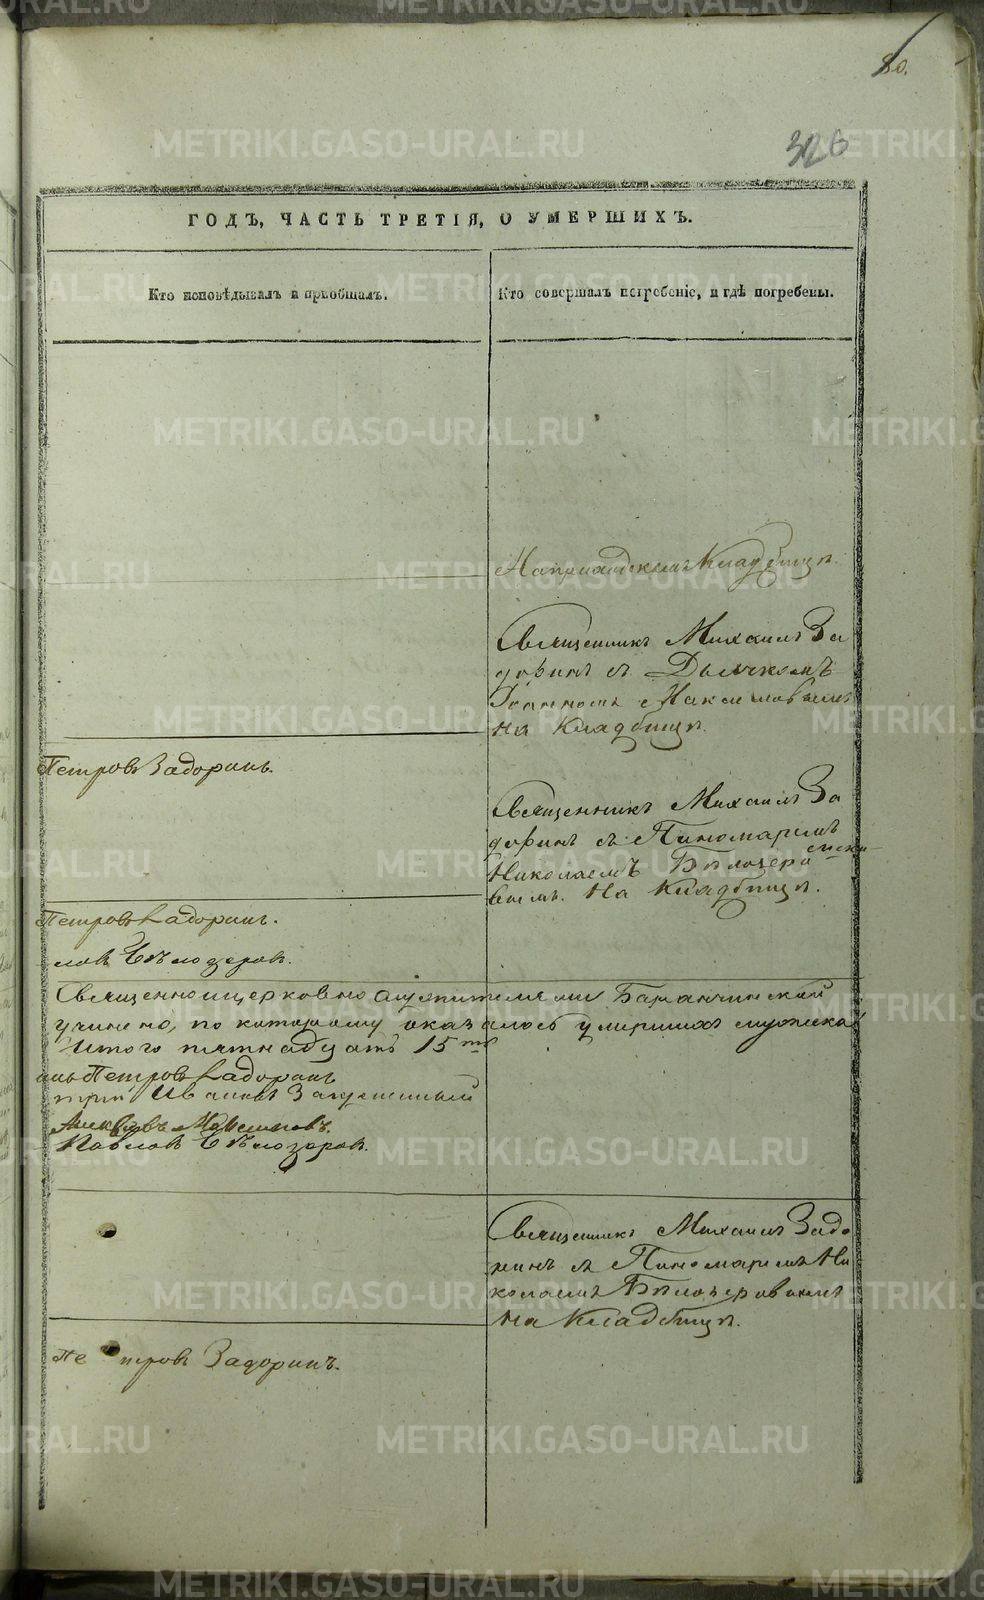 80.
326
ГОДЪ, ЧАСТЬ ТРЕТІЯ, О УМЕРШИХЪ.
Кто исповѣдывалъ и пріобщалъ.
Кто совершалъ погребеніе, и гдѣ погребены.
На приходскомъ Кладбищѣ.
Священникъ Михаилъ За
доринъ съ Дьячкомъ
Максимовымъ
на Кладбищѣ.
Петровъ Задоринъ.
Священникъ Михаилъ За
доринъ съ Пономаремъ
Николаемъ Бѣлозеро
вымъ. На Кладбищѣ.
Петровъ Задоринъ.
ловъ Бѣлозеровъ.
Священноцерковнослужителями Баранчинской
учинено, по которому оказалось умершихъ мужеска
Итого пятнадцать 15ть
Петровъ Задоринъ
Ивановъ
Максимовъ.
Павловъ Бѣлозеровъ.
Священникъ Михаилъ Задо
ринъ съ Пономаремъ Ни
колаемъ Бѣлозеровымъ
на Кладбищѣ.
Петровъ Задоринъ.
METRIKI.GASO-URAL.RU